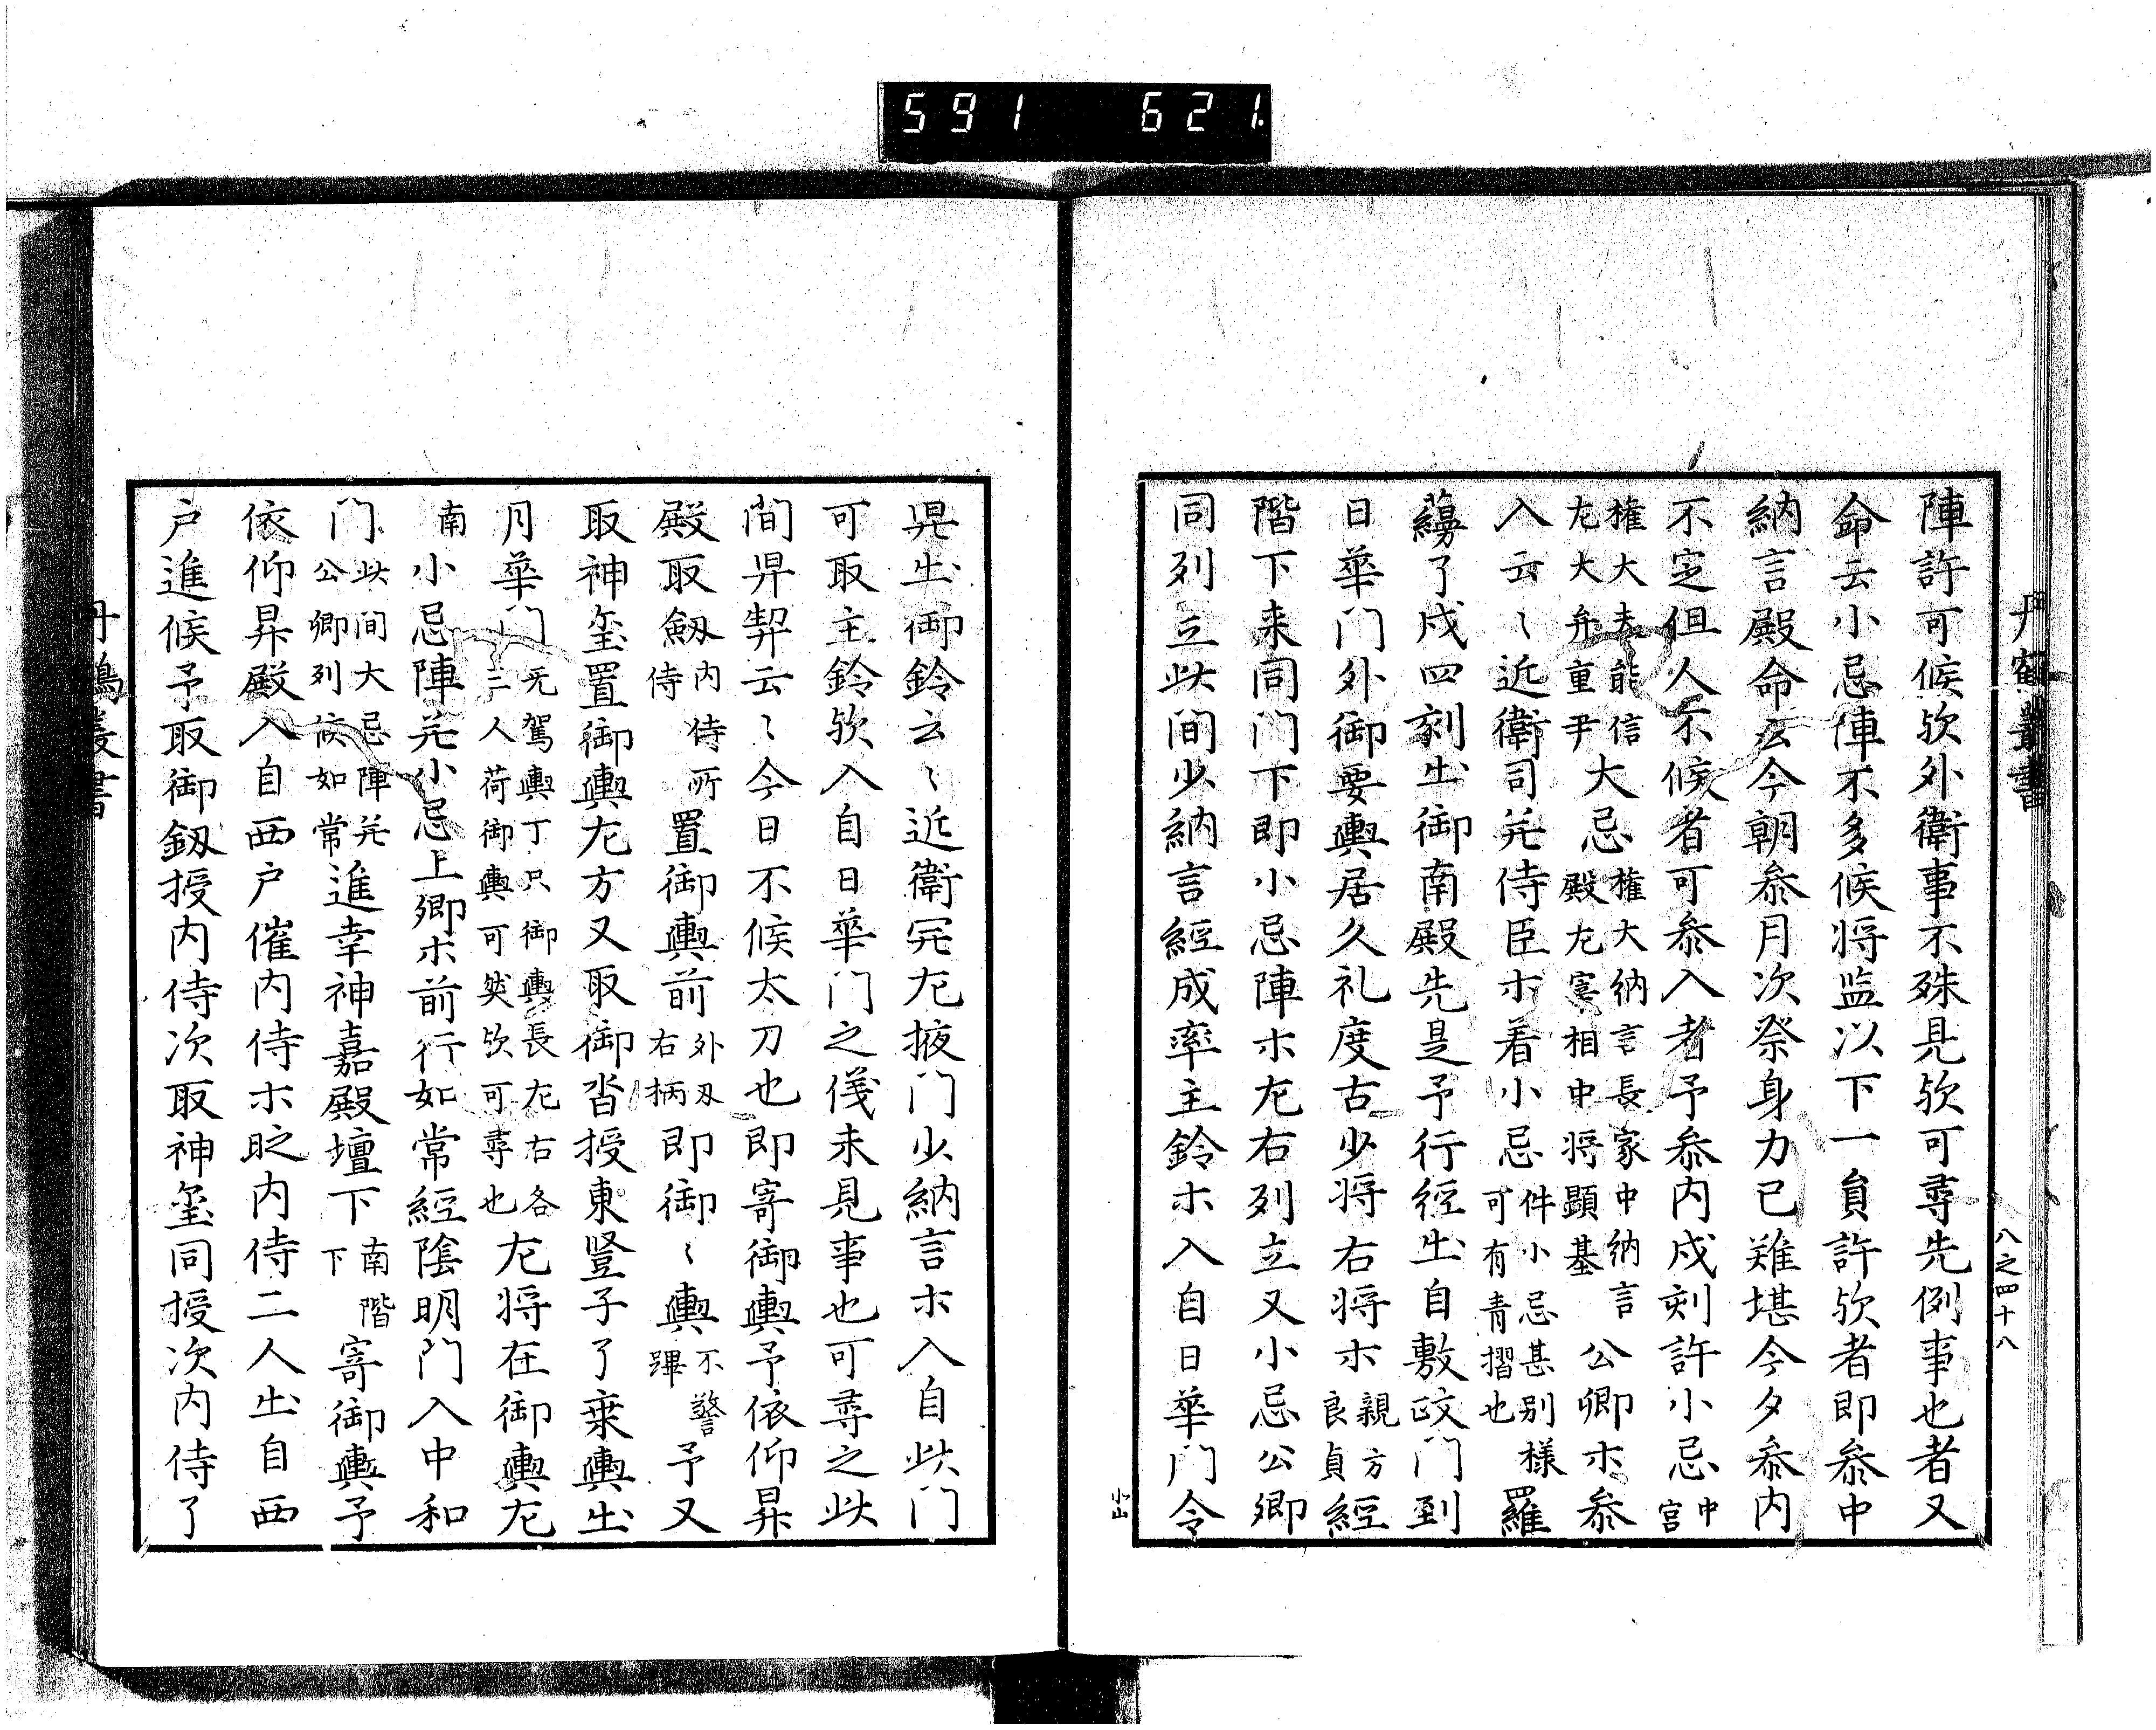 591 621
丹鶴叢書
八之四十八
陣許可候欤外衛事不殊見欤可尋先例事也者又
命云小忌陣不多候将监以下一負許欤者即参中
納言殿命云今朝参月次祭身力已難堪今夕参内
不定但人不候者可参入者予参内戌刻許小忌中宮
権大夫能信左大弁重尹大忌権大納言長家中納言殿左宰相中将顕基公卿ホ参
入云〻近衛司并侍臣ホ着小忌件小忌甚别様可有青摺也羅
蘰了戌四刻出御南殿先是予行経出自敷政门到
日華门外御要輿居久礼度古少将右将ホ親方良貞経
階下来同门下即小忌陣ホ左右列立又小忌公卿
同列立此间少納言経成率主鈴ホ入自日華门令
小山
晃出御鈴云〻近衛開左掖门少納言ホ入自此门
可取主鈴欤入自日華门之儀未見事也可尋之此
間昇契云〻今日不候太刀也即寄御輿予依仰昇
殿取劔内侍侍所置御輿前外刃右柄即御〻輿不警蹕予又
取神玺置御輿左方又取御沓授東竪子了乗輿出
月華门无駕輿丁只御輿長左右各二人荷御輿可然欤可尋也左将在御輿左
南小忌陣并小忌上卿ホ前行如常経陰明门入中和
门此間大忌陣并公卿列候如常進幸神嘉殿壇下南階下寄御輿予
依仰昇殿入自西户催内侍ホ眨内侍二人出自西
户進候予取御釼授内侍次取神玺同授次内侍了
丹鶴叢書